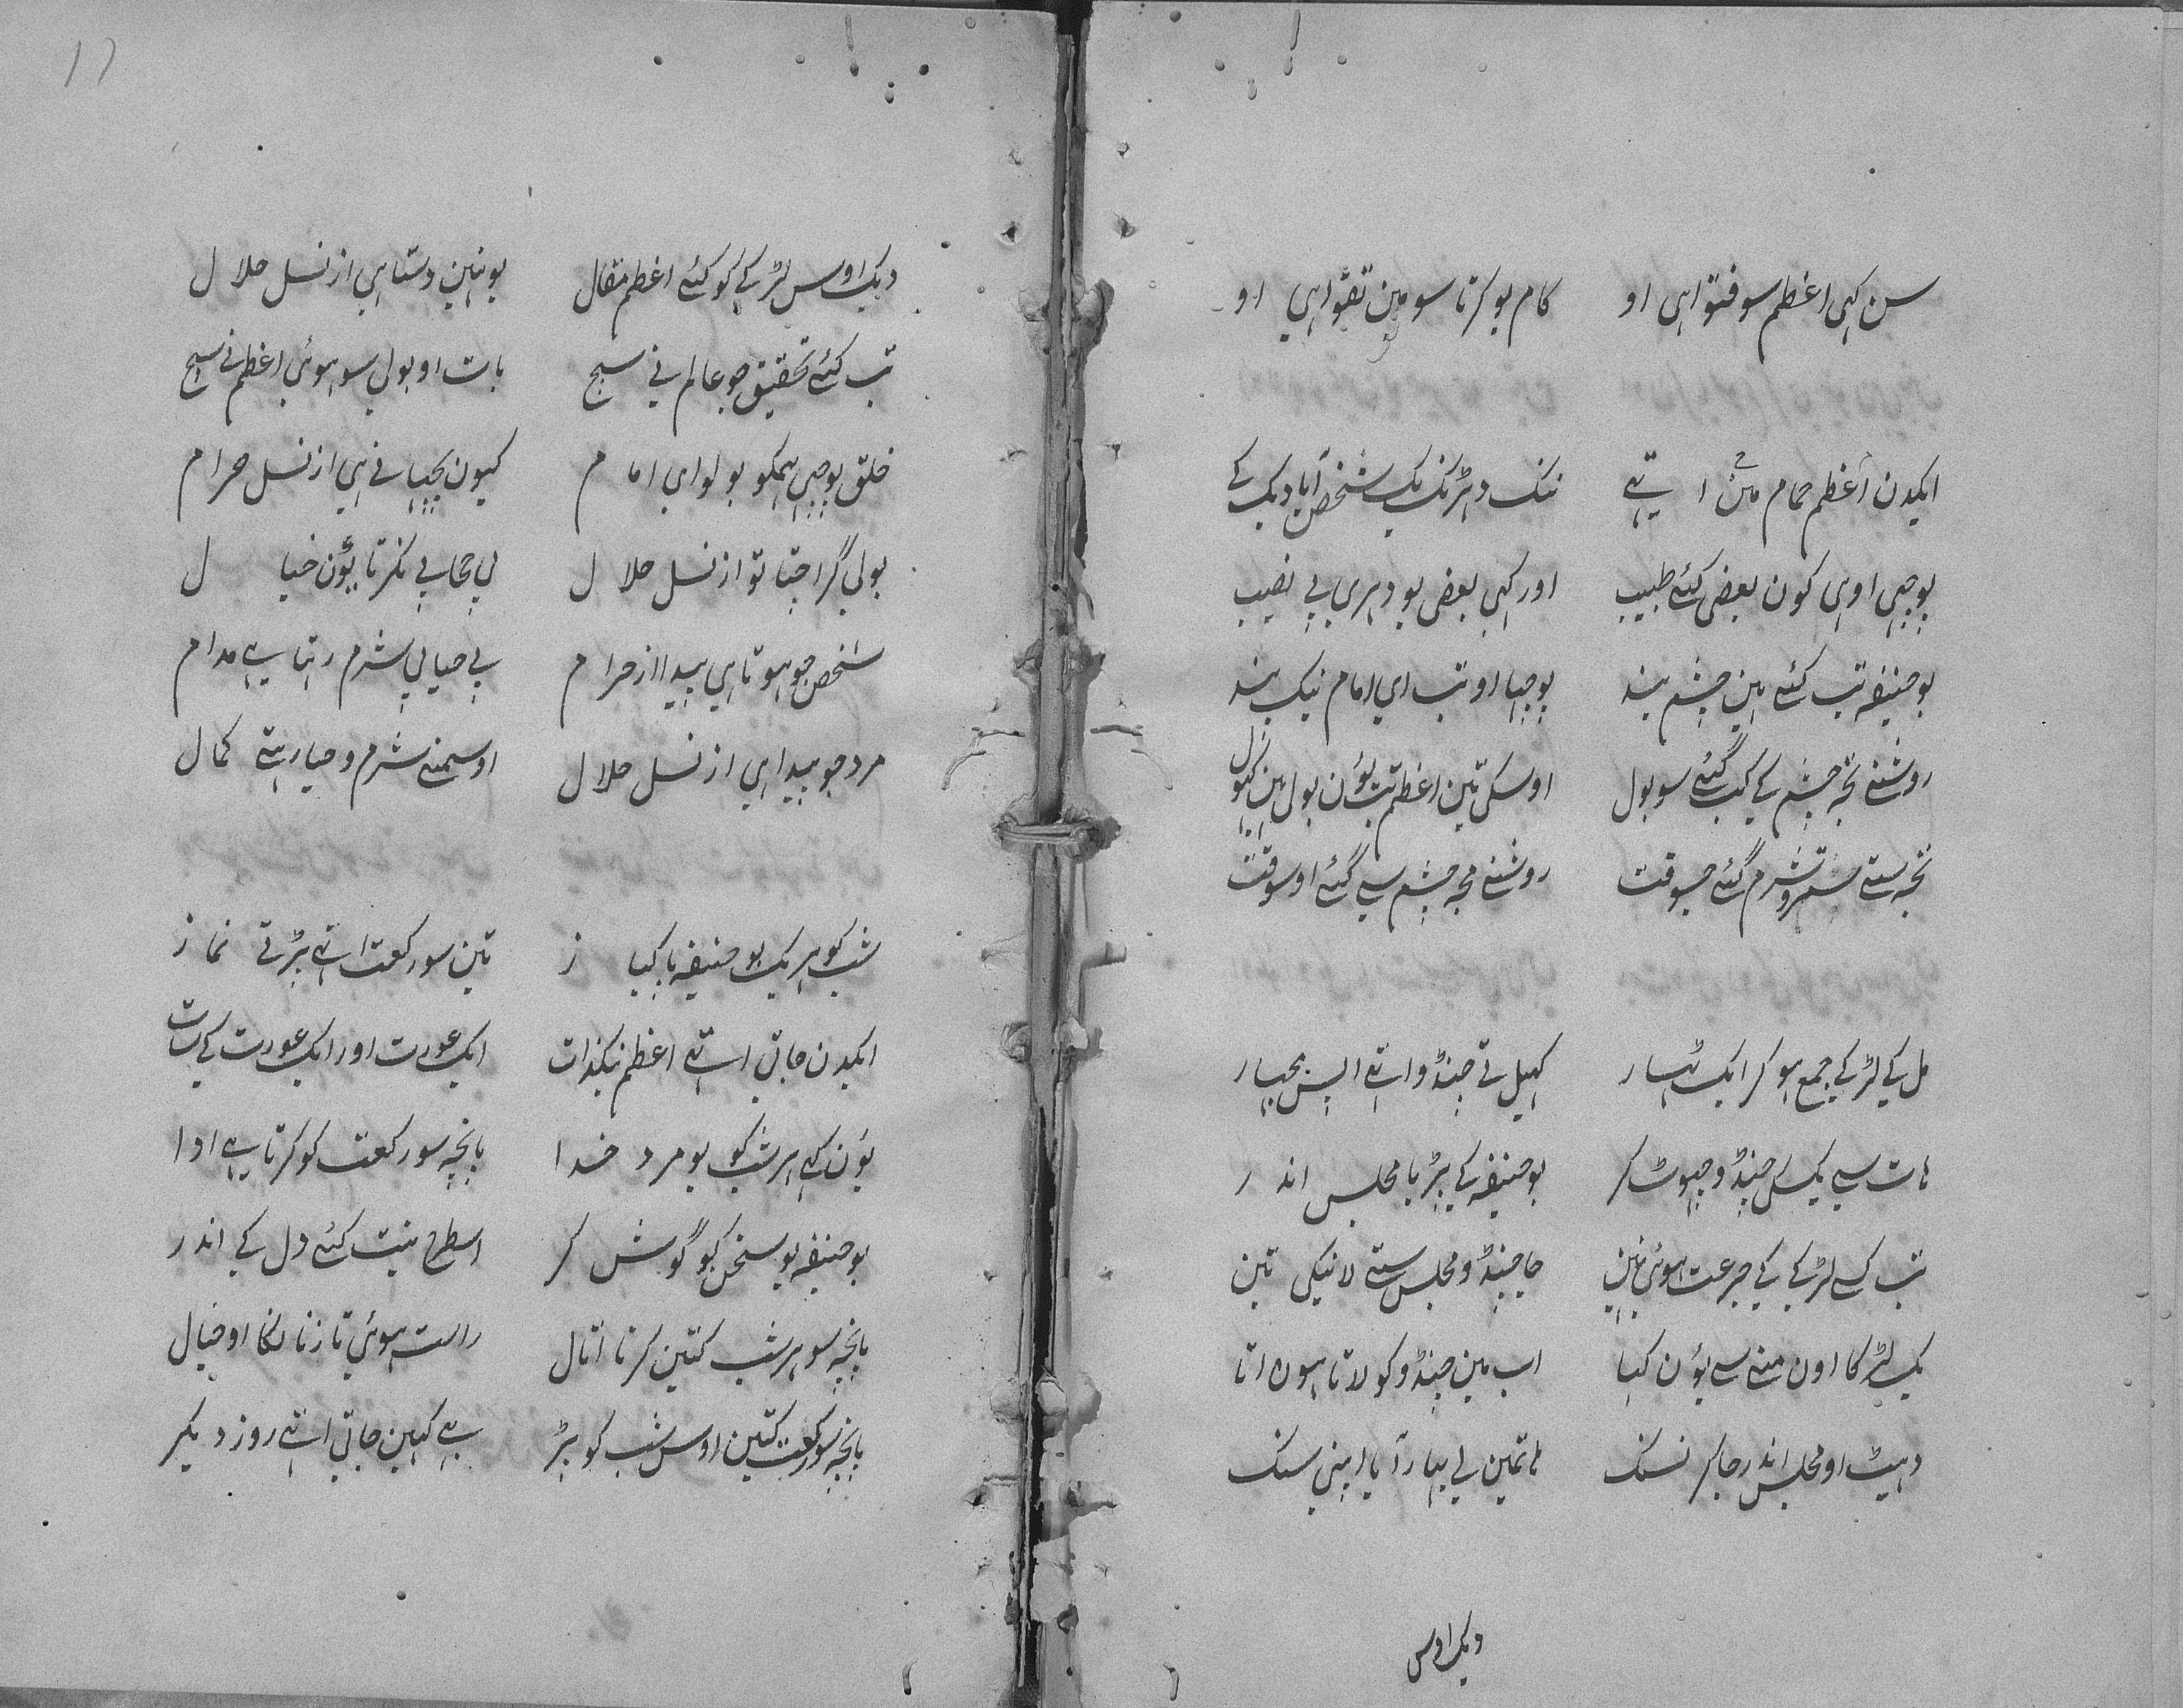 سن کہی اعظم سو فتوا ہی او کام یو کرتا سو مین تقوا ہی او
ایکدن اعظم حمام مین اتہے ننک دہڑنک یک شخص آیا دیک کے
بوجہی او ہی کون بعضی کئے طبیب اور کہی بعضی یو دہری بی نصیب
بو حنیفہ تب کئے ہین چشم بند بوجہا او تب ای امام نیک بند
روشنے تجہ چشم کے کب گئے سو بول اوسکی تین اعظم تب یون بول ہین کہول
تجہ ستے ستر و شرم گئے جسوقت روشنے مجہ چشم سے گئے اوسوقت
مل کے لڑکے جمع ہو کر ایک ٹہار کہیل تے چنڈو اتہے اپس بچار
ہات سے یک کس چنڈو چہوٹ کر بو حنیفہ کے پڑیا مجلس اندر
تب کسے لڑکے کے جرعت ہوئی نہین جا چنڈو مجلس ستے لانیکی تین
یک لڑکا اون منے سے یون کہا اب مین چنڈو کو لاتا ہون اتا
دہیٹ او مجلس اندر جا کر نسنک ہاتمین لے بہار آیا اپنی سنک
دیک اوس
17
دیک اوس لڑکے کو کئے اعظم مقال یو نہین دستا ہی از نسل حلال
تب کئے تحقیق جو عالم نے سبح بات او بولی سو ہوئی اعظم نے سبح
خلق پوچہی ہمکو بولو ای امام کیون پچہانے ہی از نسل حرام
بولی گر اچہتا تو از نسل حلال بی حجابی نکرتا یون خیال
شخص جو ہوتا ہی پیدا از حرام بی حیا بی شرم رہتا ہے مدام
مرد جو پیدا ہی از نسل حلال اوسمنے شرم و حیا رہتے کمال
شب کو ہر یک بو حنیفہ پاکباز تین سو رکعت اتہے پڑتے نماز
ایکدن جاتی اتہے اعظم نیکذات ایک عورت اور ایک عورت کے سات
یون کہے ہر شب کو یو مرد خدا پانچہ سو رکعت کو کرتا ہے ادا
بو حنیفہ یو سخن کو گوش کر اسطرح نیت کئے دل کے اندر
پانچہ سو ہر شب کتین کرنا اتال راست ہوئی تا زنانکا او خیال
پانچہ سو رکعت کتین اوس شب کو پڑ ہے کہین جاتی اتہے روز دیکر